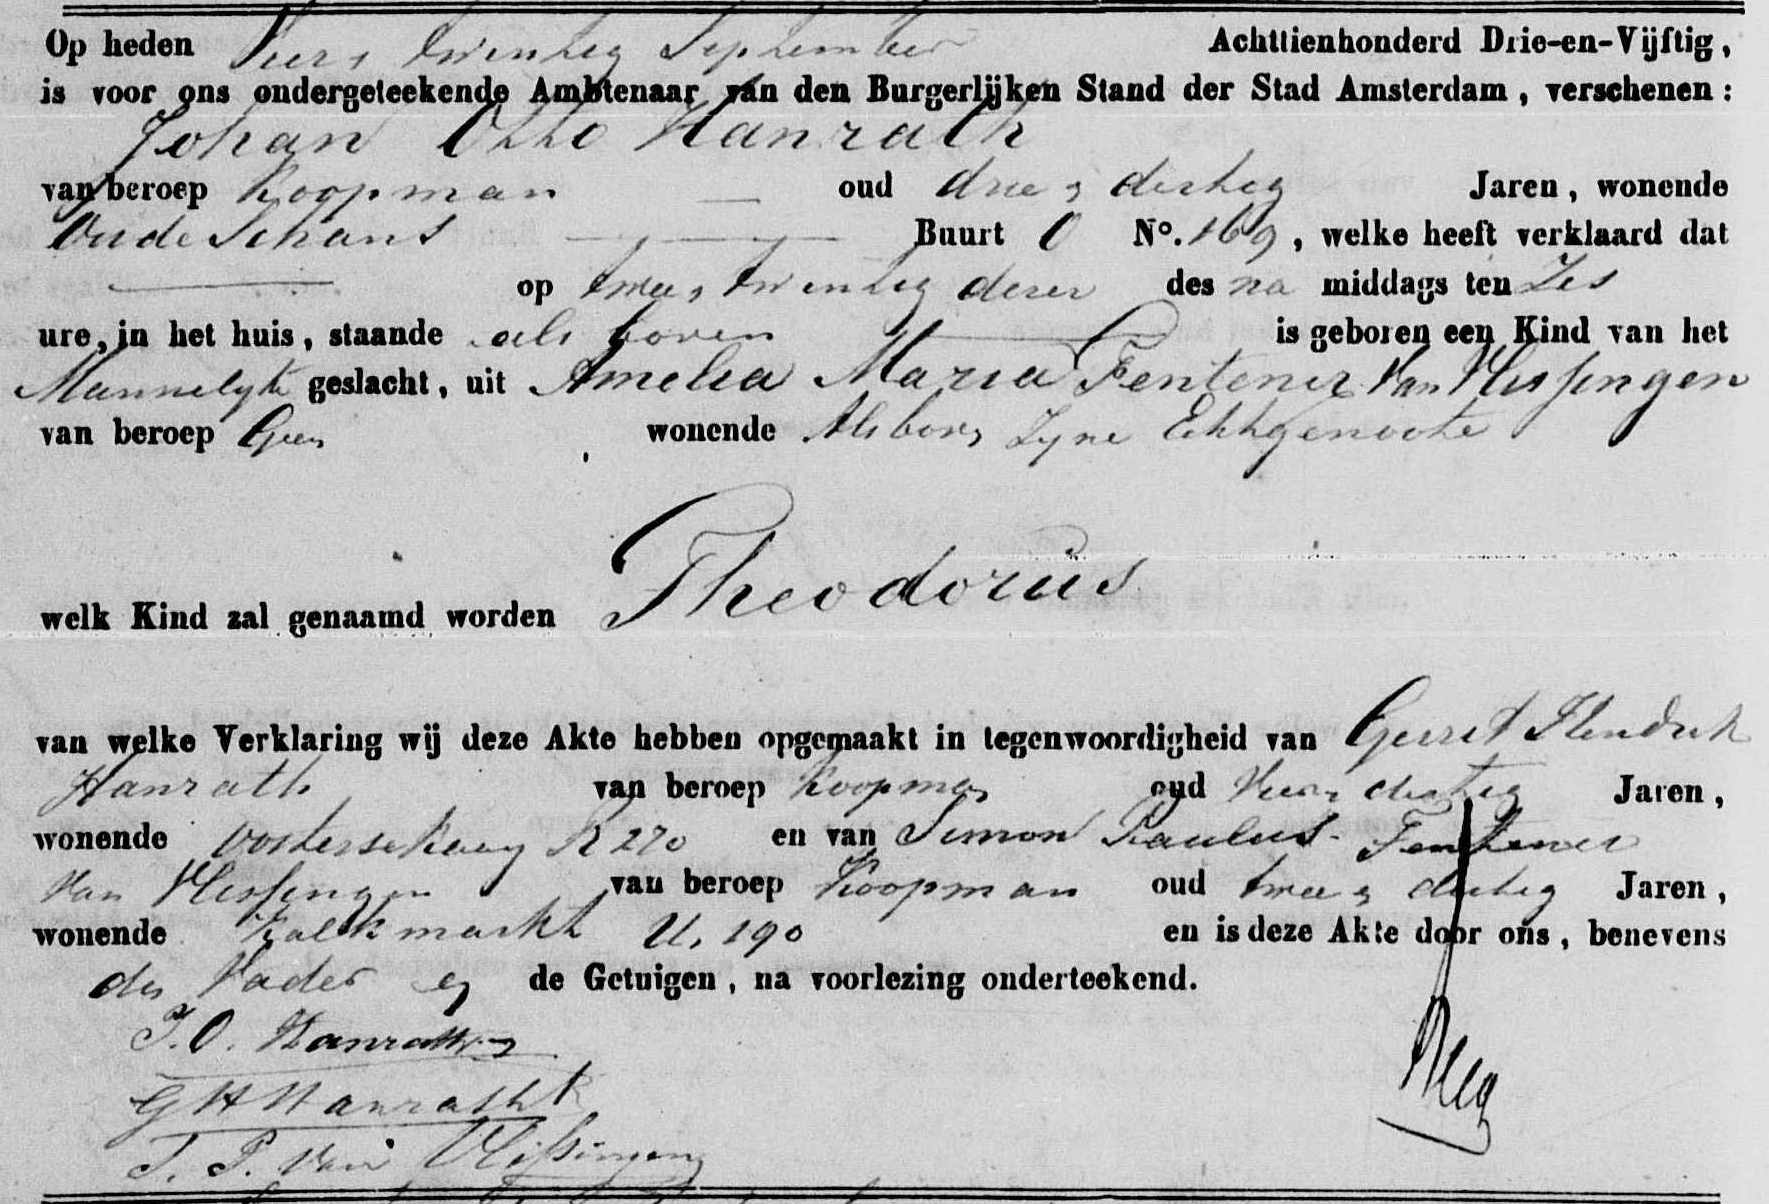 Op heden Vier, twintig September Achttienhonderd Drie-en-Vijftig,
is voor ons ondergeteekende Ambtenaar van den Burgerlijken Stand der Stad Amsterdam, verschenen:
Johan Otto Hanrath
van beroep Koopman — oud drie, dertig Jaren, wonende
Oude Schans — Buurt O No. 169, welke heeft verklaard dat
— op twee, twintig dezer des na middags ten Zes
ure, in het huis, staande als boven — is geboren een Kind van het
Mannelyke geslacht, uit Amelia Maria Fentener Van Vlissingen
van beroep Geen wonende Als boven Zyne Echtgenoote
welk Kind zal genaamd worden Theodorus
van welke Verklaring wij deze Akte hebben opgemaakt in tegenwoordigheid van Gerrit Hendrik
Hanrath van beroep Koopman oud Vier, dertig Jaren,
wonende Oosterschekaay R 270 en van Simon Paulus Fentener
Van Vlissingen van beroep Koopman oud twee, dertig Jaren,
wonende Kalkmarkt U, 190 en is deze Akte door ons, benevens
den Vader en de Getuigen, na voorlezing onderteekend.
J. O. Hanrath
G H Hanrath
S. P. Van Vlissingen